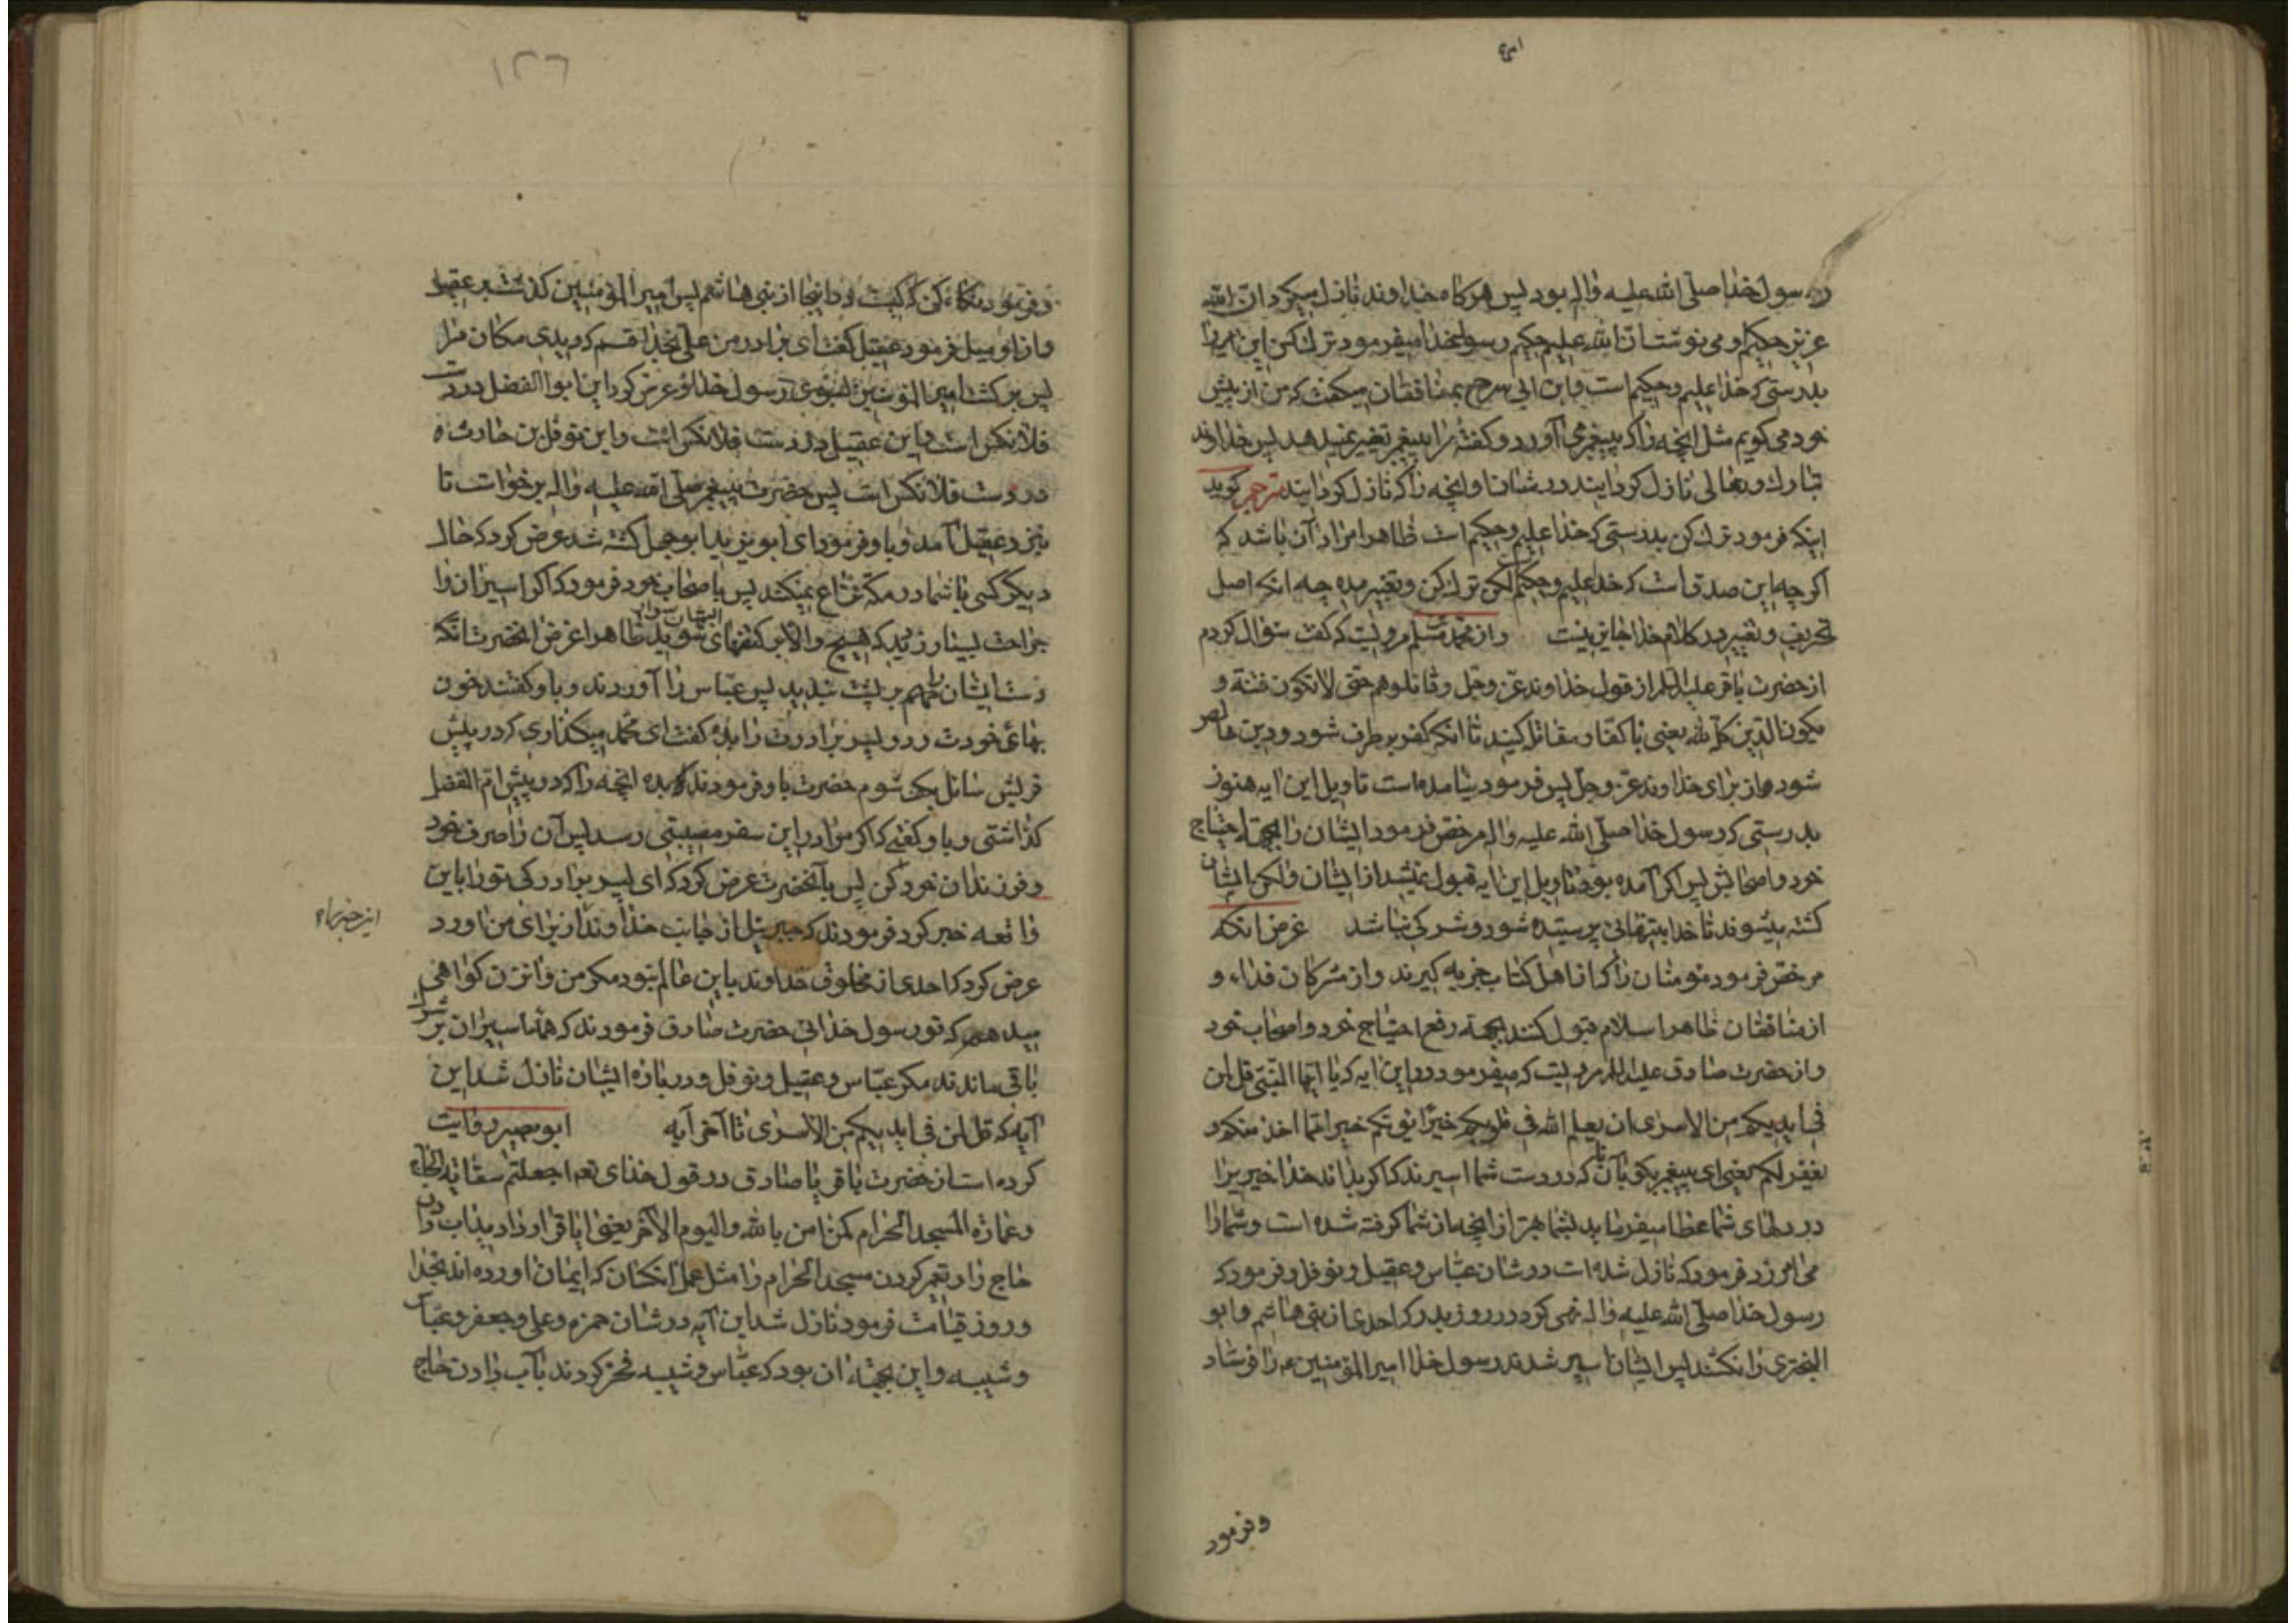 رسول خدا صلّی الله علیه واله بود پس هرکاه خداوند نازل میکرد انّ الله
عزیز حکیم او می نوشت انّ الله علیم حکیم رسولخدا میفرمود ترک کن این را
بدرستی که خدا علیم و حکیم است و ابن ابی سرح بمنافقان میکفت که من از پیش
خود می کویم مثل انچه را که پیغمبر می آورد و کفتهٔ مرا پیغمبر تغییر نمیدهد پس خداوند
تبارک و تعالی نازل کردانید در شان او انچه را که نازل کردانید مترجم کوید
اینکه فرمود ترک کن بدرستی که خدا علیم و حکیم است ظاهرا مراد آن باشد که
اکرچه این صدق است که خدا علیم و حکیم لکن ترک کن و تغییر مده چه انکه اصل
تحریف و تغییر در کلام خدا جایز نیست واز محمد بن مسلم مرویست که کفت سؤال کردم
از حضرت باقر علیه السلم از قول خداوند عزّ وجل وقاتلوهم حتّی لا تکون فتنة و
یکون الدّین کلّه لله یعنی با کفّار مقاتله کنید تا انکه کفر برطرف شود و دین خالص
شود از برای خداوند عزّ وجلّ پس فرمود نیامده است تاویل این ایه هنوز
بدرستی که رسول خدا صلّی الله علیه واله مرخّص فرمود ایشان را بجهة احتیاج
خود و اصحابش پس اکر آمده بود تاویل این ایه قبول نمیشد از ایشان ولکن ایشان
کشته میشوند تا خدا بتنهائی پرستیده شود و شرکی نباشد غرض انکه
مرخّص فرمود مومنان را که از اهل کتاب جزیه کیرند و از مشرکان فداء و
از منافقان ظاهر اسلام قبول کنند بجهة رفع احتیاج خود و اصحاب خود
و از حضرت صادق علیه السلم مرویست که میفرمود در این ایه که یا ایّها النّبیّ قل لمن
فی ایدیکم من الاسری ان یعلم الله فی قلوبکم خیرًا یؤتکم خیرا ممّا اخذ منکم و
یغفر لکم یعنی ای پیغمبر بکو بآنان که در دست شما اسیرند که اکر بداند خدا خیریرا
در دلهای شما عطا میفرماید بشما بهتر از انچه از شما کرفته شده است و شما را
می امرزد فرمود که نازل شده است در شان عبّاس و عقیل و نوفل و فرمود که
رسول خدا صلّی الله علیه واله نهی کرد در روز بدر که احدی از بنی هاشم و ابو
البختری را نکشند پس ایشان اسیر شدند رسول خدا امیر المؤمنین ع را فرستاد
وفرمود
۱۲۶
وفرمود نکاه کن که کیست در اینجا از بنی هاشم پس امیر المؤمنین کذشت بر عقیل
و از او میل فرمود عقیل کفت ای برادر من علی بخدا قسم که دیدی مکان مرا
پس برکشت امیر المؤمنین بسوی رسول خدا و عرض کرد این ابو الفضل در دست
فلانکس است و این عقیل در دست فلانکس است و این نوفل بن حارث
در دست فلانکس است پس حضرت پیغمبر صلّی الله علیه واله برخواست تا
نزد عقیل آمد و باو فرمود ای ابو یزید ابو جهل کشته شد عرض کرد که حال
دیکر کسی با شما در مکّه نزاع نمیکند پس باصحاب خود فرمود که اکر اسیران را
جراحت بسیار زدید که هیچ والا بر کتفهای ایشان سوار شوید ظاهرا غرض انحضرت انکه
دست ایشان را بهم بر پشت بندید پس عبّاس را آوردند و باو کفتند خون
بهای خودت و دو پسر برادرت را بده کفت ای محمّد میکذاری که در پیش
قریش سائل بکف شوم حضرت باو فرمودند که بده انچه را که در پیش امّ الفضل
کذاشتی و باو کفتی که اکر مرا در این سفر مصیبتی رسد پس آن را صرف خود
و فرزندان خود کن پس بآنحضرت عرض کرد که ای پسر برادر کی تو را باین
واقعه خبر کرد فرمودند که جبرئیل از جانب خداوند از برای من اورد
این خبر را
عرض کرد که احدی از مخلوق خداوند باین عالم نبود مکر من و انزن کواهی
میدهم که تو رسول خدائی حضرت صادق فرمودند که همهٔ اسیران بر شرک
باقی ماندند مکر عبّاس و عقیل و نوفل و در بارهٔ ایشان نازل شد این
آیه که قل لمن فی ایدیکم من الاسری تا آخر آیه ابو بصیر روایت
کرده است از حضرت باقر یا صادق در قول خدای تعه اجعلتم سقایة الحاجّ
وعمارة المسجد الحرام کمن امن بالله والیوم الآخر یعنی ایا قرار داد یذ اب دادن
حاج را و تعمیر کردن مسجد الحرام را مثل عمل انکسان که ایمان اورده اند بخدا
و روز قیامت فرمود نازل شد این آیه در شان حمزه و علی و جعفر و عبّاس
و شیبه و این بجهة ان بود که عبّاس و شیبه فخر کردند بآب دادن حاج